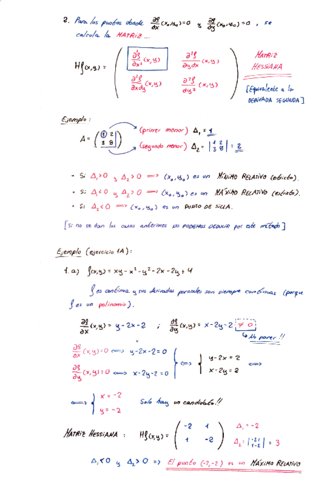 2. Para los puntos donde ∂f/∂x (x₀,y₀)=0 y ∂f/∂y (x₀,y₀)=0, se
calcula la MATRIZ...
Hf(x,y) = ( ∂²f/∂x² (x,y) ∂²f/∂y∂x (x,y)
∂²f/∂x∂y (x,y) ∂²f/∂y² (x,y) )
MATRIZ
HESSIANA
[Equivalente a la
DERIVADA SEGUNDA]
Ejemplo:
A = ( 1 2
3 8 )
(primer menor) Δ₁ = 1
(segundo menor) Δ₂ = | 1 2
3 8 | = 2
- Si Δ₁>0 y Δ₂>0 ⟹ (x₀,y₀) es un MÍNIMO RELATIVO (estricto).
- Si Δ₁<0 y Δ₂>0 ⟹ (x₀,y₀) es un MÁXIMO RELATIVO (estricto).
- Si Δ₂<0 ⟹ (x₀,y₀) es un PUNTO DE SILLA.
[Si no se dan los casos anteriores NO PODEMOS DECIDIR por este método]
Ejemplo (ejercicio 1A):
1. a) f(x,y) = xy - x² - y² - 2x - 2y + 4
f es continua y sus derivadas parciales son siempre continuas (porque
f es un polinomio).
∂f/∂x (x,y) = y-2x-2 ; ∂f/∂y (x,y) = x-2y-2
∂f/∂x (x,y)=0 ⟺ y-2x-2=0
∂f/∂y (x,y)=0 ⟺ x-2y-2=0
⟺ { y-2x = 2
x-2y = 2 ⟺
⟺ { x = -2
y = -2
Solo hay un candidato!!
MATRIZ HESSIANA : Hf(x,y) = ( -2 1
1 -2 )
Δ₁ = -2
Δ₂ = | -2 1
1 -2 | = 3
Δ₁<0 y Δ₂>0 ⟹ El punto (-2,-2) es un MÁXIMO RELATIVO